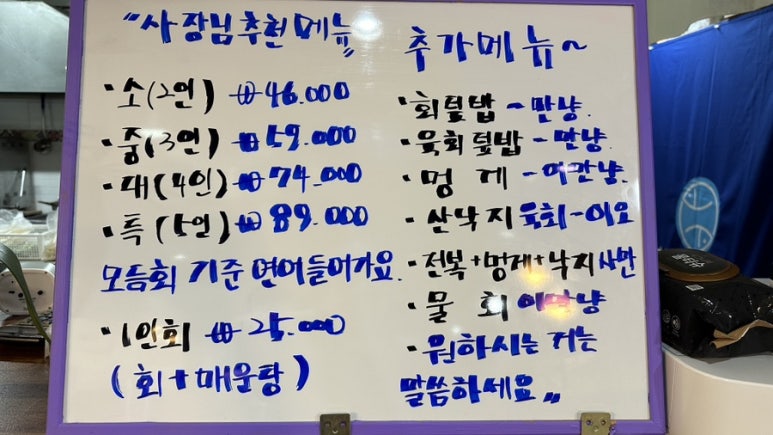 "사장님 추천 메뉴"
· 소(2인) ₩46.000
· 중(3인) ₩59.000
· 대(4인) ₩74.000
· 특(5인) ₩89.000
모듬회 기준 연어들어가요.
· 1인회 ₩25.000
(회+매운탕)
추가메뉴~
· 회덮밥 - 만냥.
· 육회덮밥 - 만냥.
· 멍게 - 이만냥.
· 산낙지육회-이오
· 전복+멍게+낙지 사만
· 물회 이만냥
· 원하시는 거는
말씀하세요.,